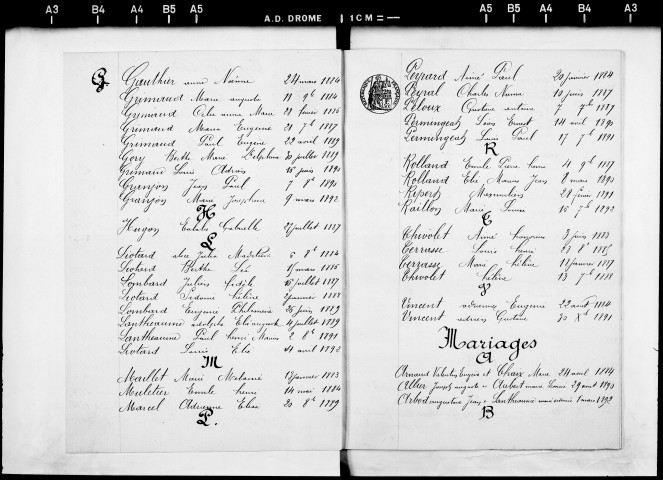 A3 B4 A4 B5 A5 A.D. DROME 1 CM A5 B5 A4 B4 A3
G.
Gauthier anna Naïma 24 mars 1884
Grimaud Marie augusta 11 9b 1884
Grimaud Marie 21 février 1886
Grimaud Marie Eugène 21 7b 1887
Grimaud Paul Eugène 22 avril 1889
Gory Berthe Marie Delphine 30 juillet 1889
Grimaud Louis Adrien 15 juin 1890
Granjon Jean Paul 7 8b 1890
Granjon Marie Joséphine 9 mars 1892
H
Hugon Gabrielle 27 juillet 1887
L
Liotard Julie 6 8b 1884
Liotard Berthe 15 mars 1886
Lombard Julien fidèle 15 juillet 1887
Liotard hélène janvier 1888
Lombard Eugène Philémon 25 juin 1889
Lantheaume 4 juillet 1889
Lantheaume Paul henri 2 8b 1891
Liotard Louis Elie 21 avril 1892
M
Maillet Marie Mélanie 13 janvier 1883
Muletier Emile henri 14 mai 1884
Marcel Adrienne Elisa 20 8b 1889
P.
Peyrard Aimé Paul 20 janvier 1884
Peyral Charles Numa 10 juin 1887
Peloux Gustave antoine 7 7b 1887
Permingeat Ernest 14 avril 1890
Permingeat Louis Paul 17 7b 1891
R
Rolland Emile henri 4 9b 1887
Rolland Elie Jean 8 mars 1890
Ripert Maximilien 28 1891
Raillon Marie Louise 15 7b 1892
T
Thivolet Aimé françois 3 juin 1883
Terrasse Louis henri 23 8b 1885
Terrasse Marie hélène 12 janvier 1887
Thivolet hélène 13 7b 1888
V
Vincent Eugène 22 août 1884
Vincent adrien Gustave 30 Xb 1891
Mariages
A
Arnaud Eugène et Chaix Marie 24 avril 1884
Allier Joseph auguste et Aubert marie Louise 29 1890
Arbod augustin Jean et Lantheaume 1 mars 1892
B